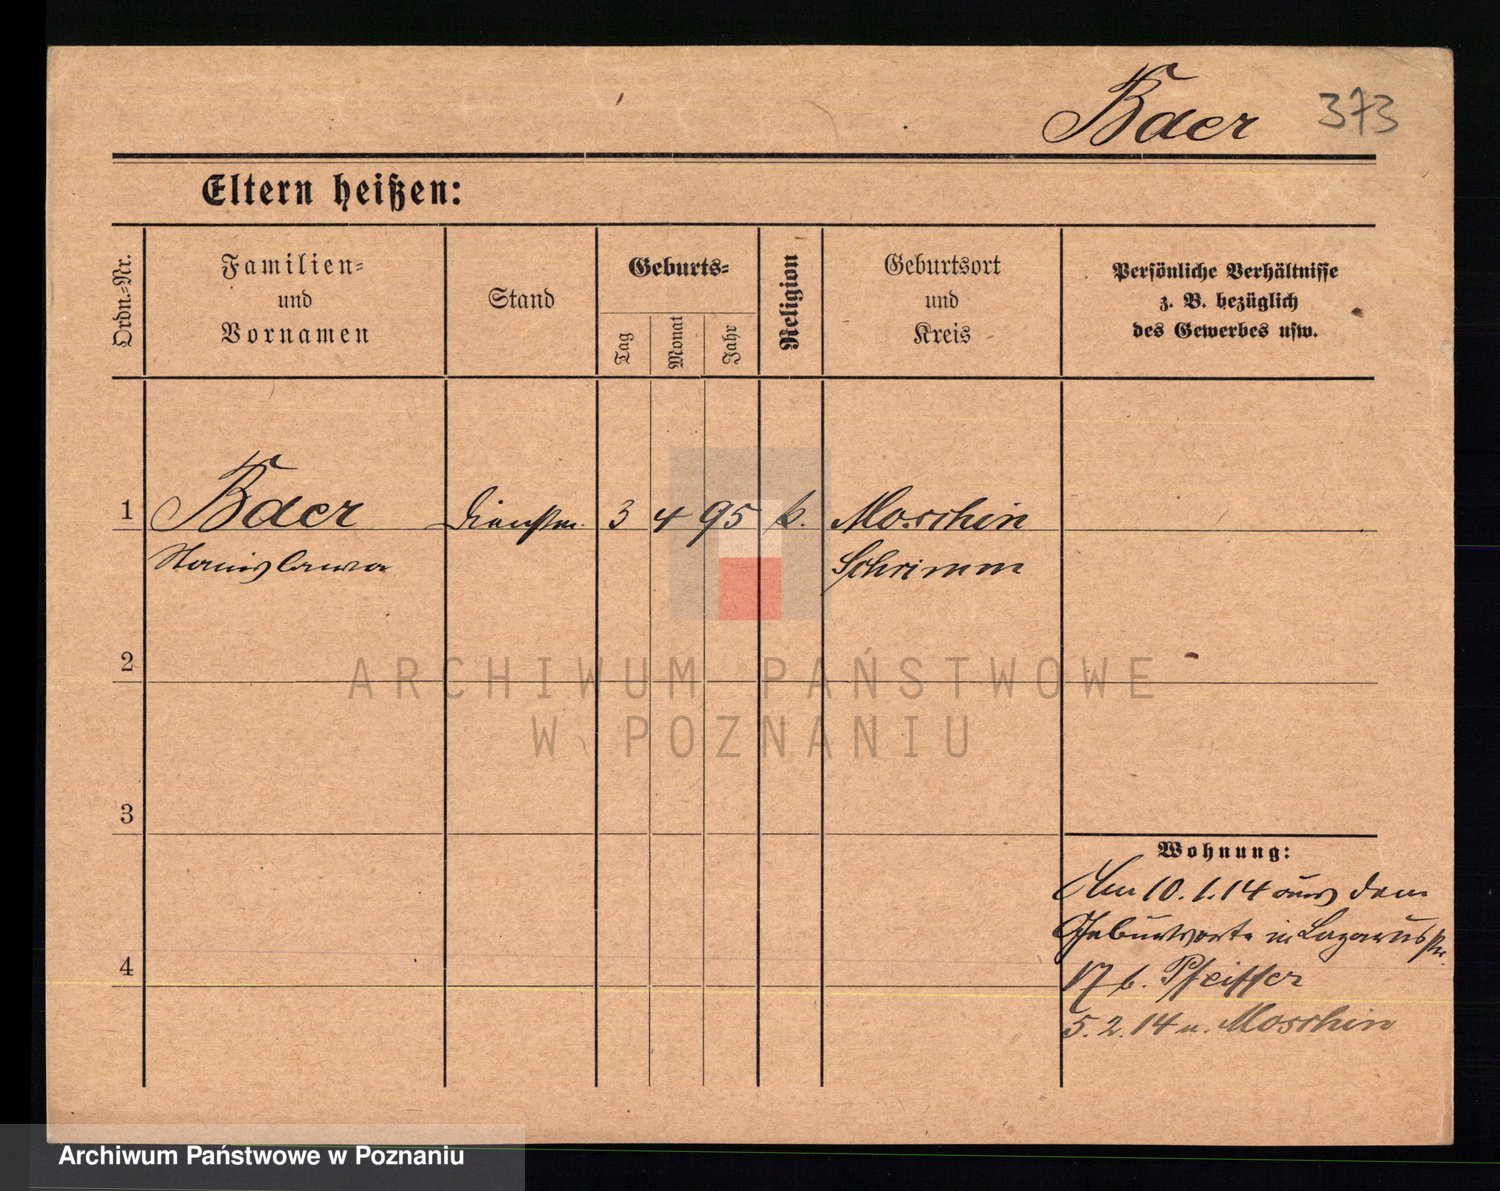 Baer 373
Eltern heißen:
Ordn.-Nr.
Familien-
und
Vornamen
Stand
Geburts-
Tag
Monat
Jahr
Religion
Geburtsort
und
Kreis
Persönliche Verhältnisse
z. B. bezüglich
des Gewerbes usw.
1 Baer 3 4 95 k. Moschin
Stanislawa Schrimm
2
ARCHIWUM PAŃSTWOWE
W POZNANIU
3
Wohnung:
Am 10.1.14 aus dem
Geburtsorte in Lazarusstr.
17 b. Pfeiffer
4
5.2.14 n. Moschin
Archiwum Państwowe w Poznaniu